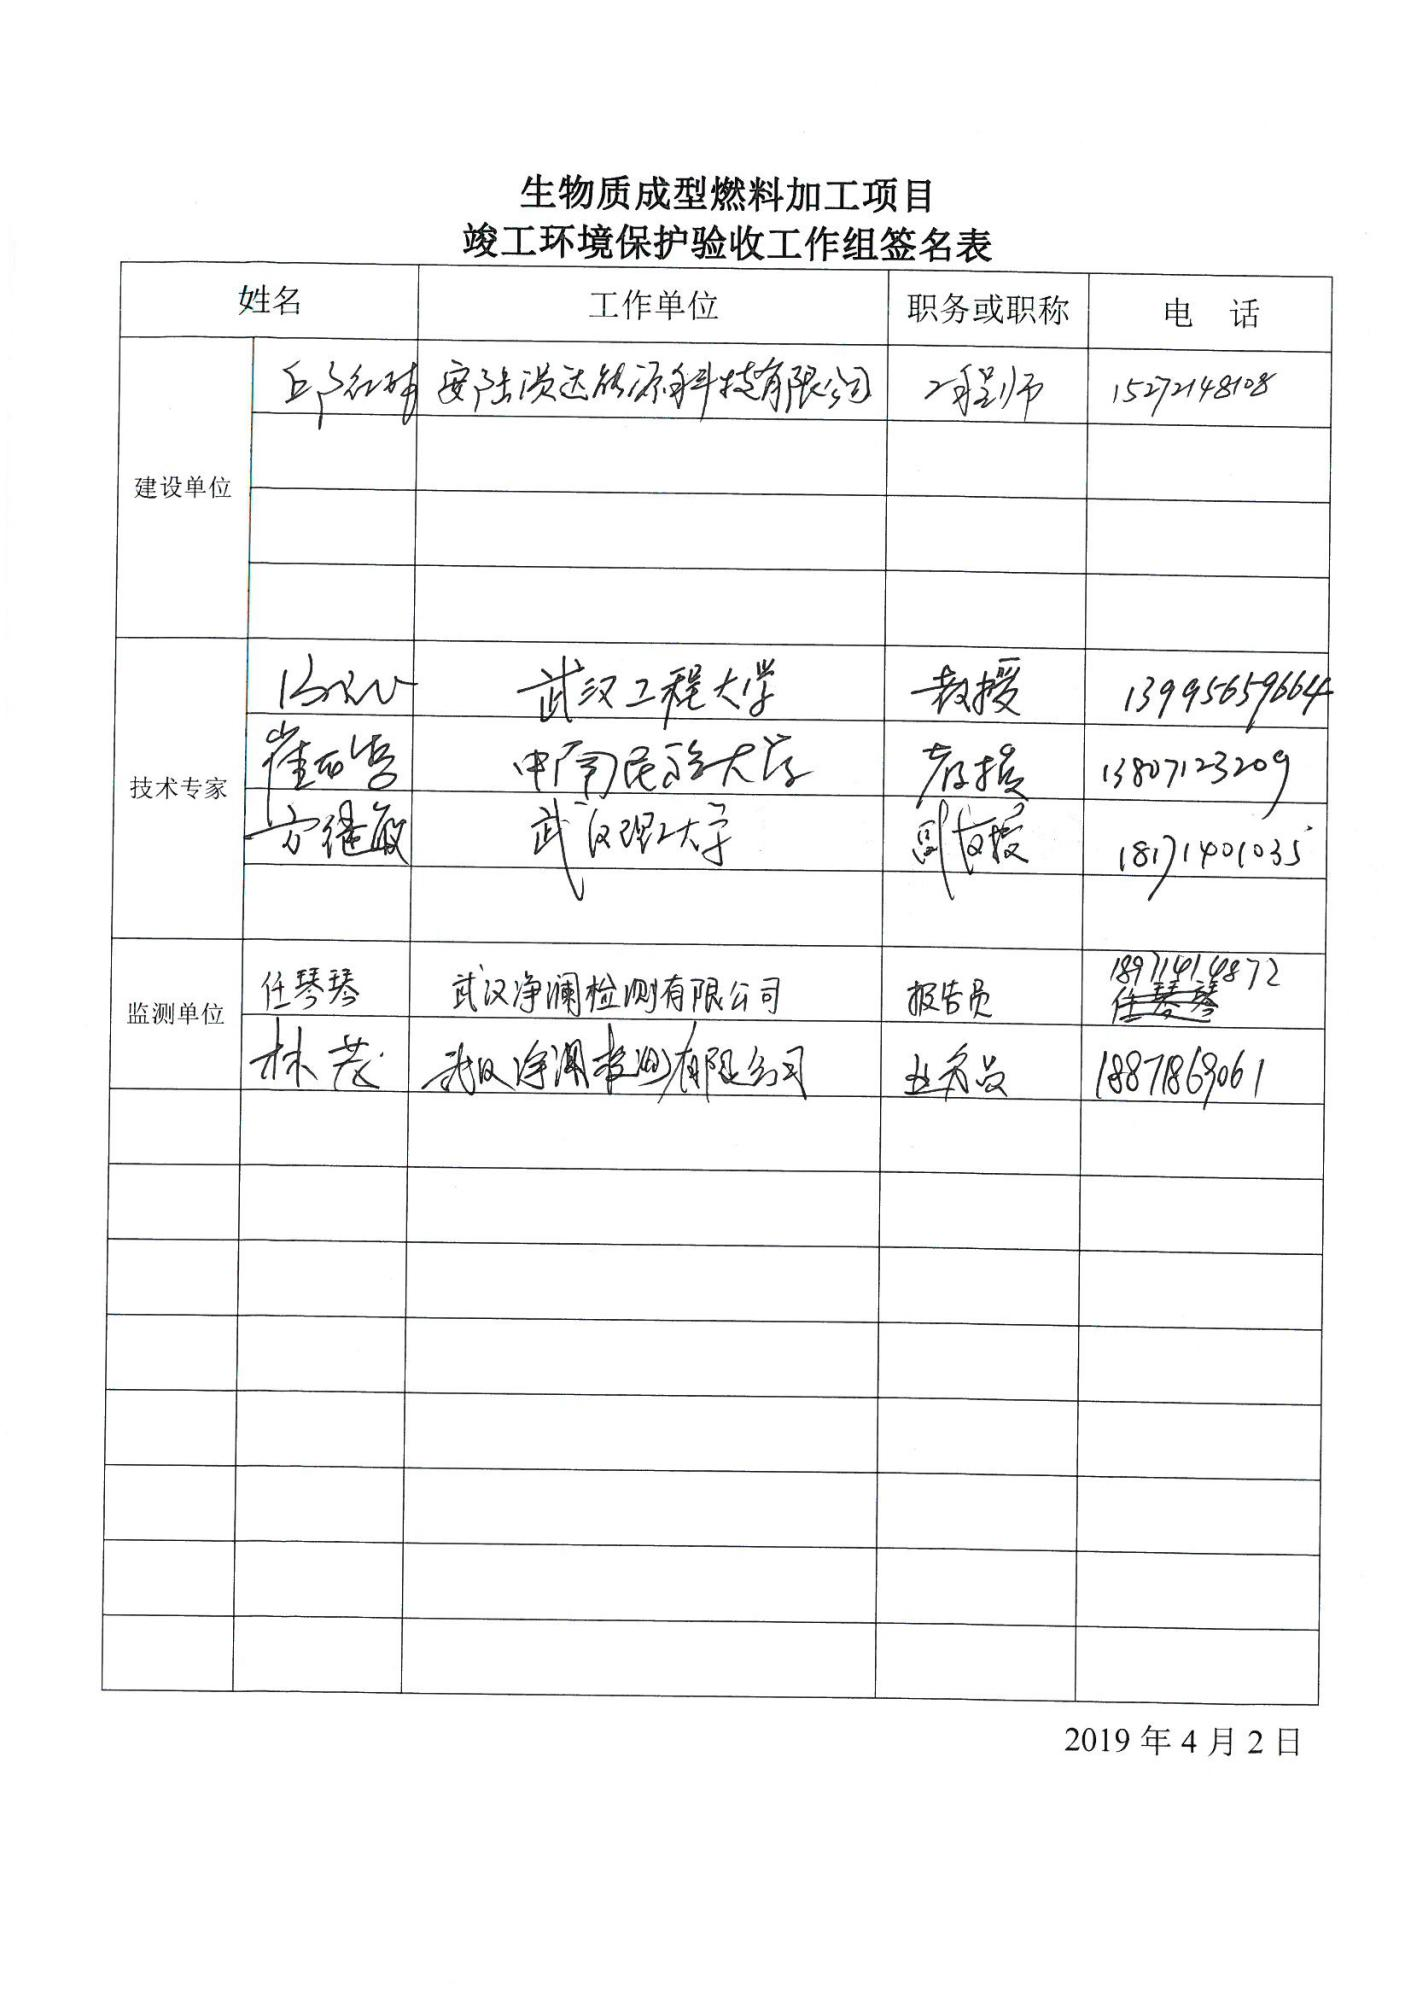 生物质成型燃料加工项目
竣工环境保护验收工作组签名表
姓名 工作单位 职务或职称 电 话
建设单位
邱 安陆涢达能源科技有限公司 工程师 15272148108
技术专家
武汉工程大学 教授 13995659664
崔 中南民族大学 教授 13807123209
方继敏 武汉理工大学 副教授 18171401035
监测单位
任琴琴 武汉净澜检测有限公司 报告员 18971414872
任琴琴
林茂 武汉净澜检测有限公司 业务员 18871869061
2019 年 4 月 2 日